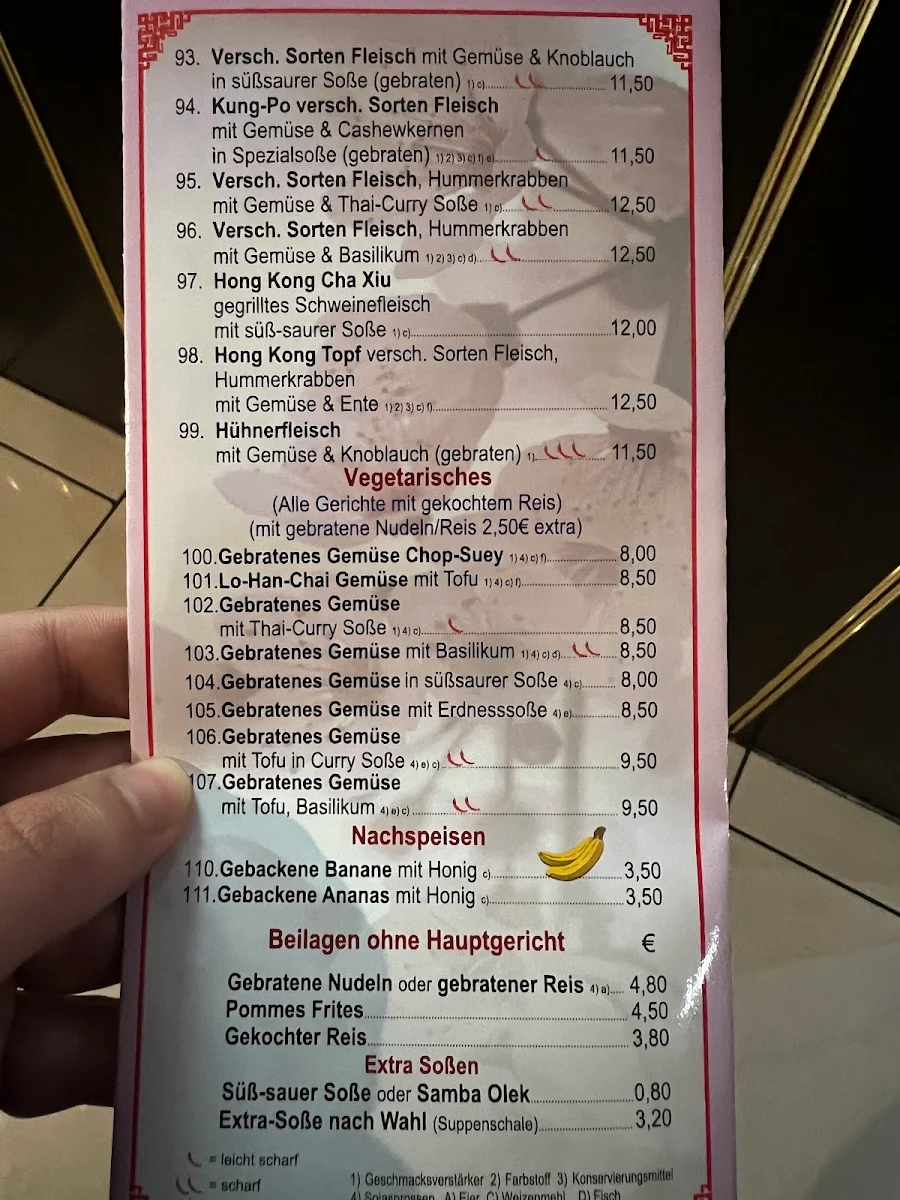 93. Versch. Sorten Fleisch mit Gemüse & Knoblauch
in süßsaurer Soße (gebraten) 1) c) 11,50
94. Kung-Po versch. Sorten Fleisch
mit Gemüse & Cashewkernen
in Spezialsoße (gebraten) 1) 2) 3) c) f) e) 11,50
95. Versch. Sorten Fleisch, Hummerkrabben
mit Gemüse & Thai-Curry Soße 1) c) 12,50
96. Versch. Sorten Fleisch, Hummerkrabben
mit Gemüse & Basilikum 1) 2) 3) c) d) 12,50
97. Hong Kong Cha Xiu
gegrilltes Schweinefleisch
mit süß-saurer Soße 1) c) 12,00
98. Hong Kong Topf versch. Sorten Fleisch,
Hummerkrabben
mit Gemüse & Ente 1) 2) 3) c) f) 12,50
99. Hühnerfleisch
mit Gemüse & Knoblauch (gebraten) 1) 11,50
Vegetarisches
(Alle Gerichte mit gekochtem Reis)
(mit gebratene Nudeln/Reis 2,50€ extra)
100.Gebratenes Gemüse Chop-Suey 1) 4) c) f) 8,00
101.Lo-Han-Chai Gemüse mit Tofu 1) 4) c) f) 8,50
102.Gebratenes Gemüse
mit Thai-Curry Soße 1) 4) c) 8,50
103.Gebratenes Gemüse mit Basilikum 1) 4) c) d) 8,50
104.Gebratenes Gemüse in süßsaurer Soße 4) c) 8,00
105.Gebratenes Gemüse mit Erdnesssoße 4) e) 8,50
106.Gebratenes Gemüse
mit Tofu in Curry Soße 4) e) c) 9,50
107.Gebratenes Gemüse
mit Tofu, Basilikum 4) e) c) 9,50
Nachspeisen
110.Gebackene Banane mit Honig c) 3,50
111.Gebackene Ananas mit Honig c) 3,50
Beilagen ohne Hauptgericht €
Gebratene Nudeln oder gebratener Reis 4) a) 4,80
Pommes Frites 4,50
Gekochter Reis 3,80
Extra Soßen
Süß-sauer Soße oder Samba Olek 0,80
Extra-Soße nach Wahl (Suppenschale) 3,20
= leicht scharf
= scharf
1) Geschmacksverstärker 2) Farbstoff 3) Konservierungsmittel
4) Sojasprossen A) Eier C) Weizenmehl D) Fisch